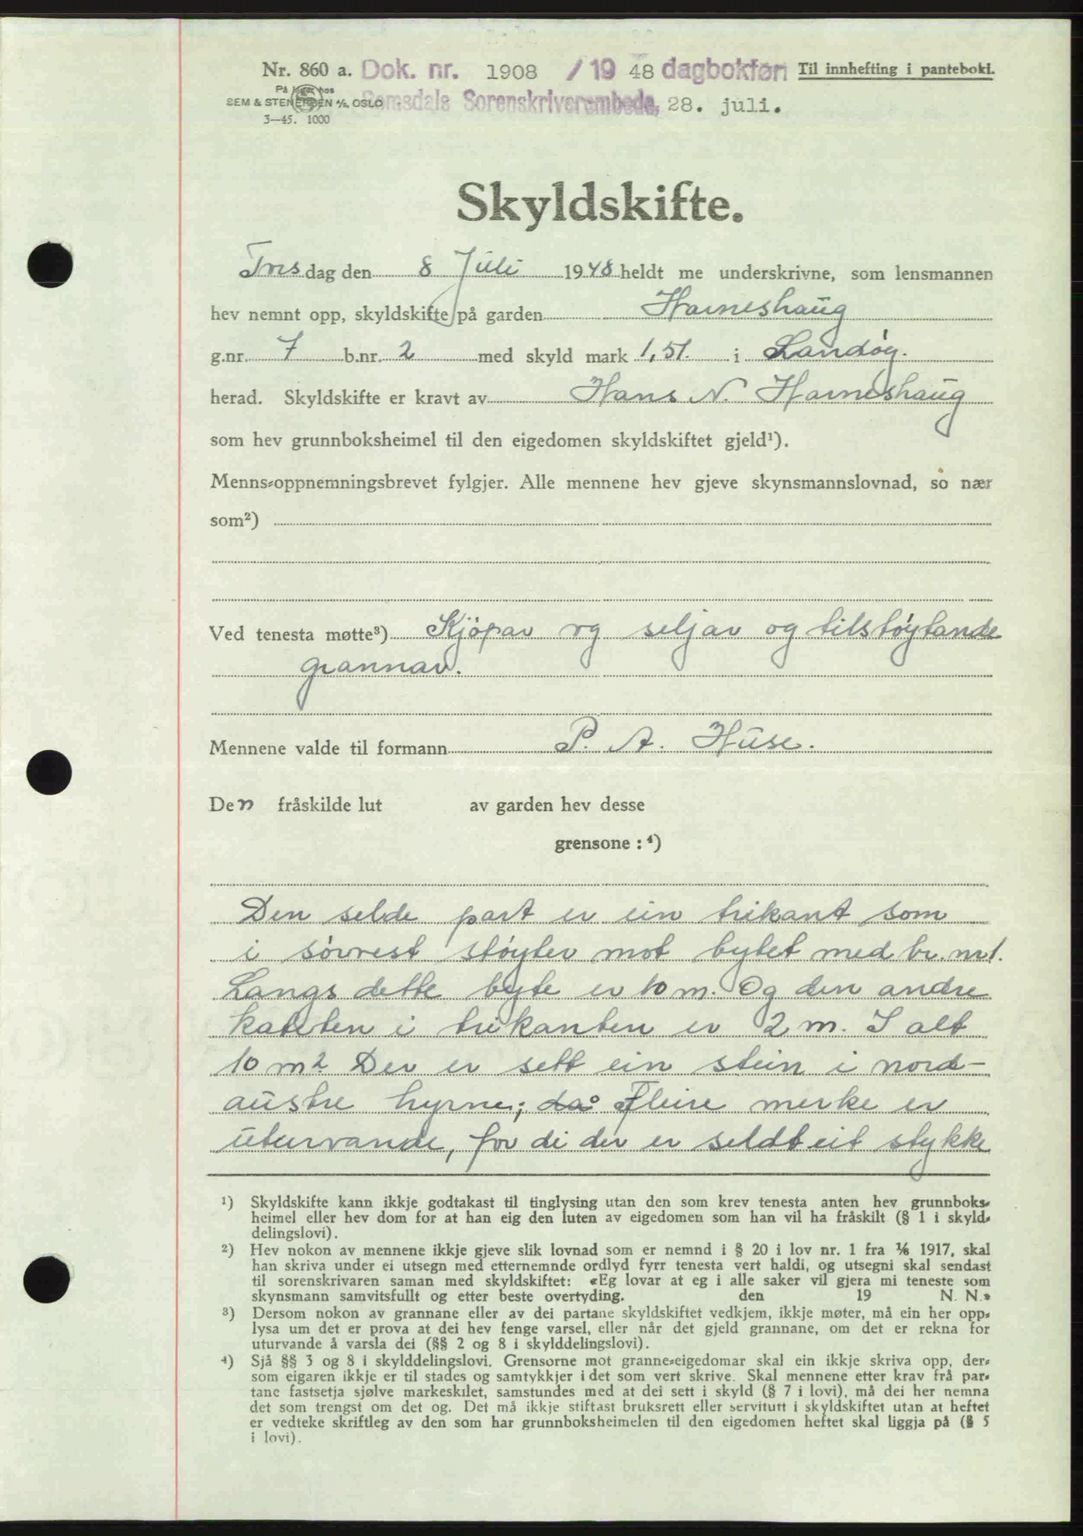 Nr. 860 a. Dok. nr. 1908 /19 48 dagbokført Til innhefting i panteboki.
På lager hos
SEM & STENERSEN A/S, OSLO Romsdals Sorenskriverembede, 28. juli.
3—45. 1000
Skyldskifte.
Tors dag den 8 Juli 1948 heldt me underskrivne, som lensmannen
hev nemnt opp, skyldskifte på garden Harneshaug
g.nr. 7 b.nr. 2 med skyld mark 1,51. i Sandøy.
herad. Skyldskifte er kravt av Hans N. Harneshaug
som hev grunnboksheimel til den eigedomen skyldskiftet gjeld¹).
Menns-oppnemningsbrevet fylgjer. Alle mennene hev gjeve skynsmannslovnad, so nær
som²)
Ved tenesta møtte³) Kjöpar og seljar og tilstøytande
grannar.
Mennene valde til formann P. A. Huse.
Den fråskilde lut av garden hev desse
grensone : ⁴)
Den selde part er ein trikant som
i sørvest støyter mot bytet med br. nr 1.
Langs dette byte er 10 m. Og den andre
kateten i trikanten er 2 m. I alt
10 m2 Der er sett ein stein i nord-
austre hyrne; då Fleire merke er
uturvande, for di der er seldt eit stykke
¹) Skyldskifte kann ikkje godtakast til tinglysing utan den som krev tenesta anten hev grunnboks-
heimel eller hev dom for at han eig den luten av eigedomen som han vil ha fråskilt (§ 1 i skyld-
delingslovi).
²) Hev nokon av mennene ikkje gjeve slik lovnad som er nemnd i § 20 i lov nr. 1 fra 1/6 1917, skal
han skriva under ei utsegn med etternemnde ordlyd fyrr tenesta vert haldi, og utsegni skal sendast
til sorenskrivaren saman med skyldskiftet: «Eg lovar at eg i alle saker vil gjera mi teneste som
skynsmann samvitsfullt og etter beste overtyding. den 19 N. N.»
³) Dersom nokon av grannane eller av dei partane skyldskiftet vedkjem, ikkje møter, må ein her opp-
lysa um det er prova at dei hev fenge varsel, eller når det gjeld grannane, om det er rekna for
uturvande å varsla dei (§§ 2 og 8 i skylddelingslovi).
⁴) Sjå §§ 3 og 8 i skylddelingslovi. Grensorne mot granne-eigedomar skal ein ikkje skriva opp, der-
som eigaren ikkje er til stades og samtykkjer i det som vert skrive. Skal mennene etter krav frå par-
tane fastsetja sjølve markeskilet, samstundes med at dei sett i skyld (§ 7 i lovi), må dei her nemna
det som trengst om det og. Det må ikkje stiftast bruksrett eller servitutt i skyldskiftet utan at heftet
er vedteke skriftleg av den som har grunnboksheimelen til den eigedomen heftet skal liggja på (§ 5
i lovi).